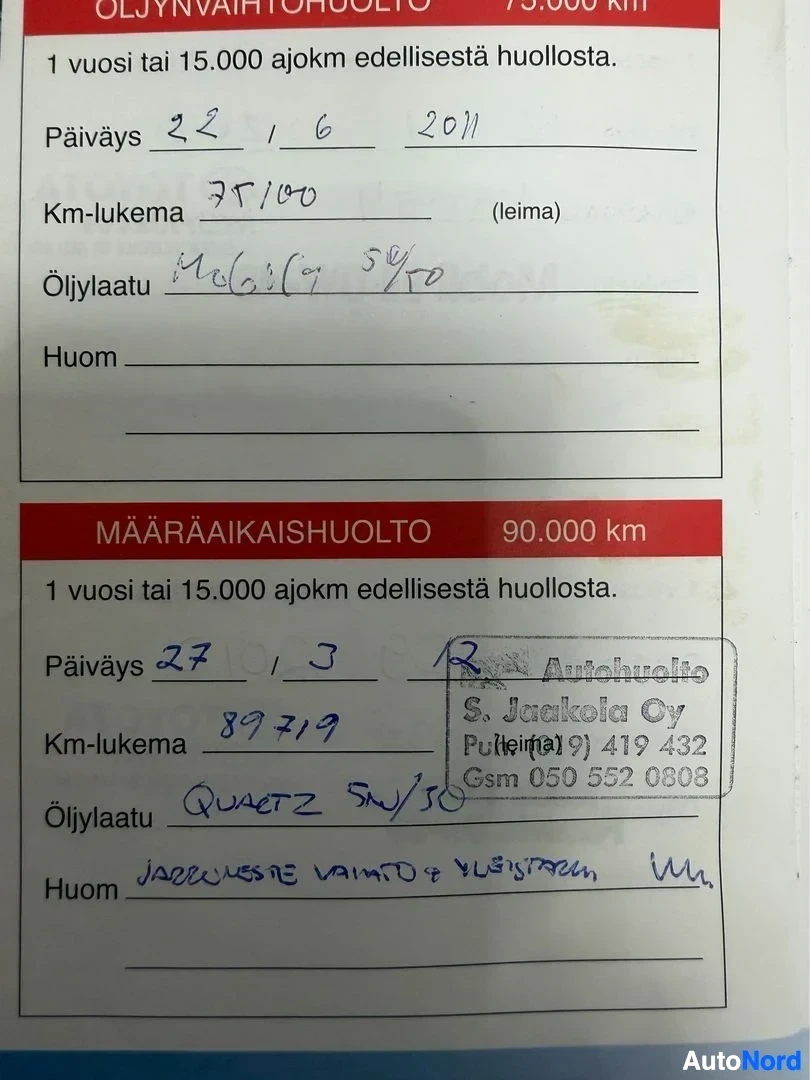 ÖLJYNVAIHTOHUOLTO 75.000 km
1 vuosi tai 15.000 ajokm edellisestä huollosta.
Päiväys 22 / 6 2011
Km-lukema 75100 (leima)
Öljylaatu
Huom
MÄÄRÄAIKAISHUOLTO 90.000 km
1 vuosi tai 15.000 ajokm edellisestä huollosta.
Päiväys 27 / 3 12
Autohuolto
S. Jaakola Oy
Km-lukema 89719 (leima)
Puh. (019) 419 432
Gsm 050 552 0808
Öljylaatu QUARTZ 5W/30
Huom JARRUNESTE VAIHTO + YLEISTARK
AutoNord